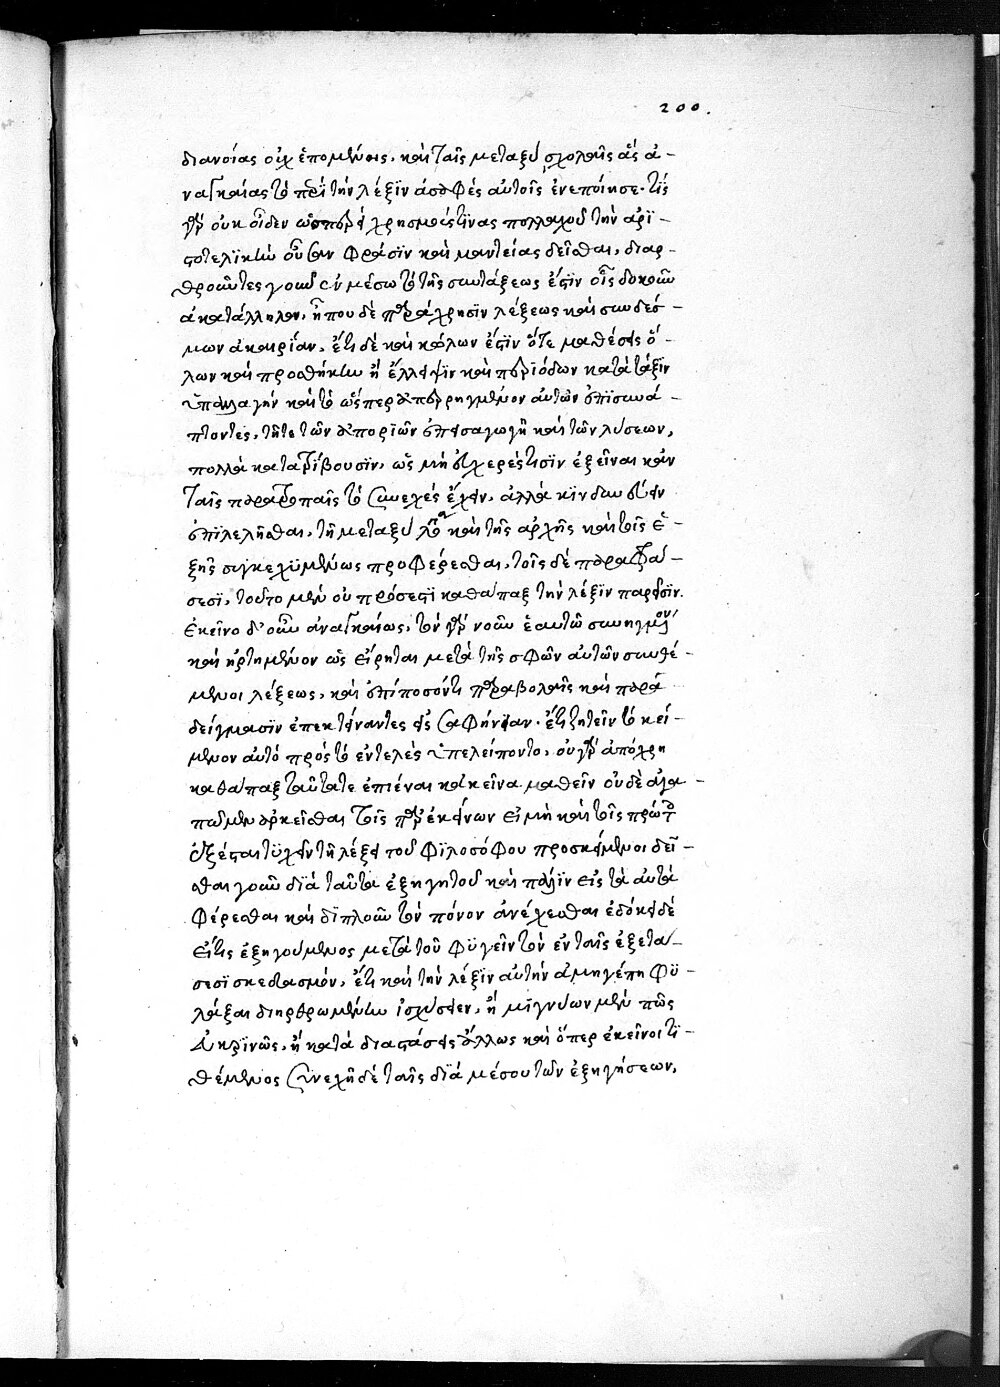 200.
διανοίας οὐχ ἑπομένοις, καὶ ταῖς μεταξὺ σχολαῖς ἃς ἀ-
ναγκαίας τὸ περὶ τὴν λέξϊν ἀσαφὲς αὐτοῖς ἐνεποίησε· τίς
γὰρ οὐκ οἶδεν ὥσπερ χρησμούς τϊνας πολλαχοῦ τὴν ἀρϊ-
στοτελϊκὴν φράσϊν καὶ μαντείας δεῖσθαι, διαρ-
θροῦντες γοῦν ἐν μέσω τὸ τῆς συντάξεως ἔστϊν οἷς δοκοῦν
ἀκατάλληλον, ἤπου δὲ παράχρησϊν λέξεως καὶ συνδέσ-
μων ἀκαιρίαν, ἔτι δὲ καὶ κώλων ἔστϊν ὅτε μαθέσεις ὅ-
λων καὶ προσθήκην ἢ ἔλλειψϊν καὶ περϊόδων κατὰ τάξϊν
ὑπαλλαγὴν καὶ τὸ ὥσπερ ἀπερρηγμένον αὐτῶν ἐπϊσυνά-
πτοντες, τῆτε τῶν ἀποριῶν ἐπεισαγωγῆ καὶ τῶν λύσεων,
πολλὰ κατατρίβουσϊν, ὡς μὴ εὐχερές τισϊν ἐξεῖναι κἂν
ταῖς παρατροπαῖς τὸ συνεχὲς ἔχειν, ἀλλὰ κϊνδυνεύειν
ἐπϊλελῆσθαι, τῆ μεταξὺ καὶ τῆς ἀρχῆς καὶ τοῖς ἑ-
ξῆς συγκεχϋμένως προφέρεσθαι, τοῖς δὲ παραφρά-
σεσϊ, τοῦτο μὲν οὐ πρόσεστϊ καθάπαξ τὴν λέξϊν παρεῖσϊν.
ἐκεῖνο δ' οὖν ἀναγκαίως, τὸν γὰρ νοῦν ἑαυτῶ συνηγμένον
καὶ ἠρτημένον ὡς εἴρηται μετὰ τῆς σφῶν αὐτῶν συνθέ-
μενοι λέξεως, καὶ ἐπϊποσόν τι παραβολαῖς καὶ παρα
δείγμασϊν ἐπεκτείναντες εἰς σαφήνειαν· ἔτι ζητεῖν τὸ κεί-
μενον αὐτὸ πρὸς τὸ ἐντελὲς ὑπελείποντο, οὐ γὰρ ἀπόχρη
καθάπαξ ταῦτά τε ἐπιέναι κἀκεῖνα μαθεῖν οὐδὲ ἀγα-
πῶμεν ἀρκεῖσθαι τοῖς παρ' ἐκείνων εἰ μὴ καὶ τοῖς πρώτοις
ἐξέσται τϋχεῖν τῆ λέξει τοῦ φϊλοσόφου προσκείμενοι δεῖ-
σθαι γοῦν διὰ ταῦτα ἐξηγητοῦ καὶ πάλϊν εἰς τὰ αὐτὰ
φέρεσθαι καὶ διπλοῦν τὸν πόνον ἀνέχεσθαι ἐδόκει δὲ
εἴ τις ἐξηγούμενος μετὰ τοῦ φϋγεῖν τὸν ἐν ταῖς ἐξετά-
σεσϊ σκεδασμόν, ἔτι καὶ τὴν λέξϊν αὐτὴν ἀμηγέπη φϋ-
λάξαι διηρθρωμένην ἰσχύσειεν, ἢ μϊγνύων μὲν πῶς
εὐκρϊνῶς, ἢ κατὰ διαστάσεις ἄλλως καὶ ὅπερ ἐκεῖνοι τϊ-
θέμενος συνεχῆ δὲ ταῖς διὰ μέσου τῶν ἐξηγήσεων,